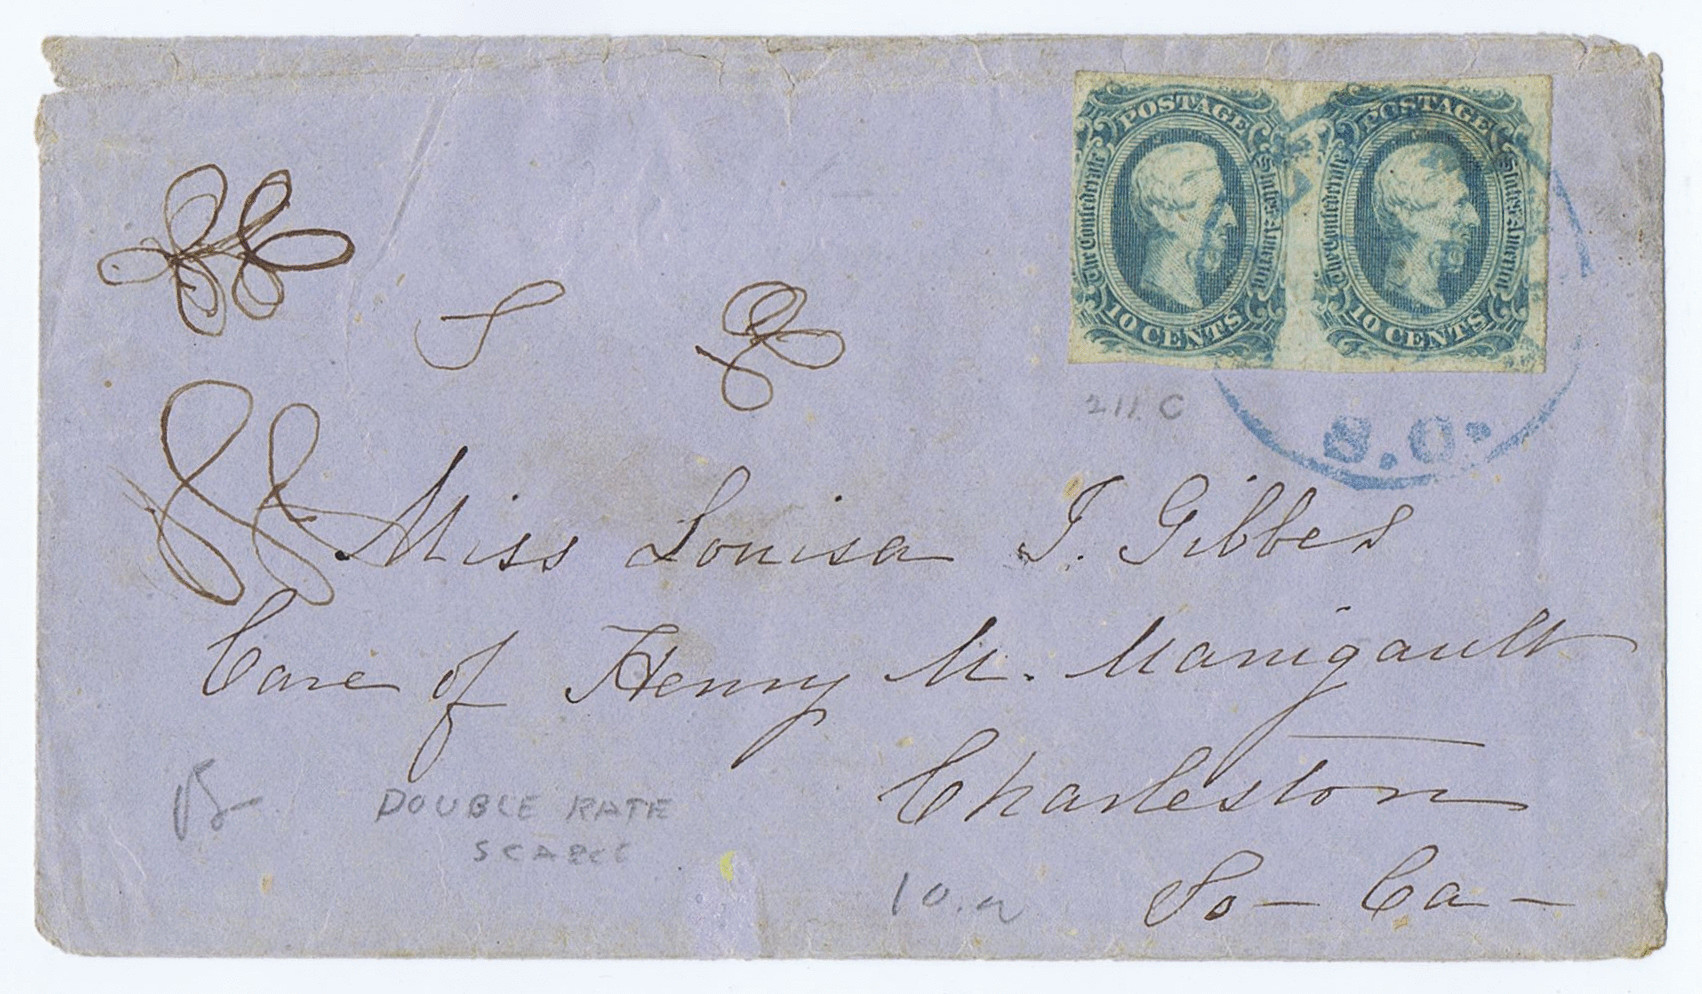 POSTAGE POSTAGE
The Confederate States of America The Confederate States of America
10 CENTS 10 CENTS
211 C
S.C.
Miss Louisa I. Gibbes
Care of Henry M. Manigault
Charleston
So - Ca -
DOUBLE RATE
10.